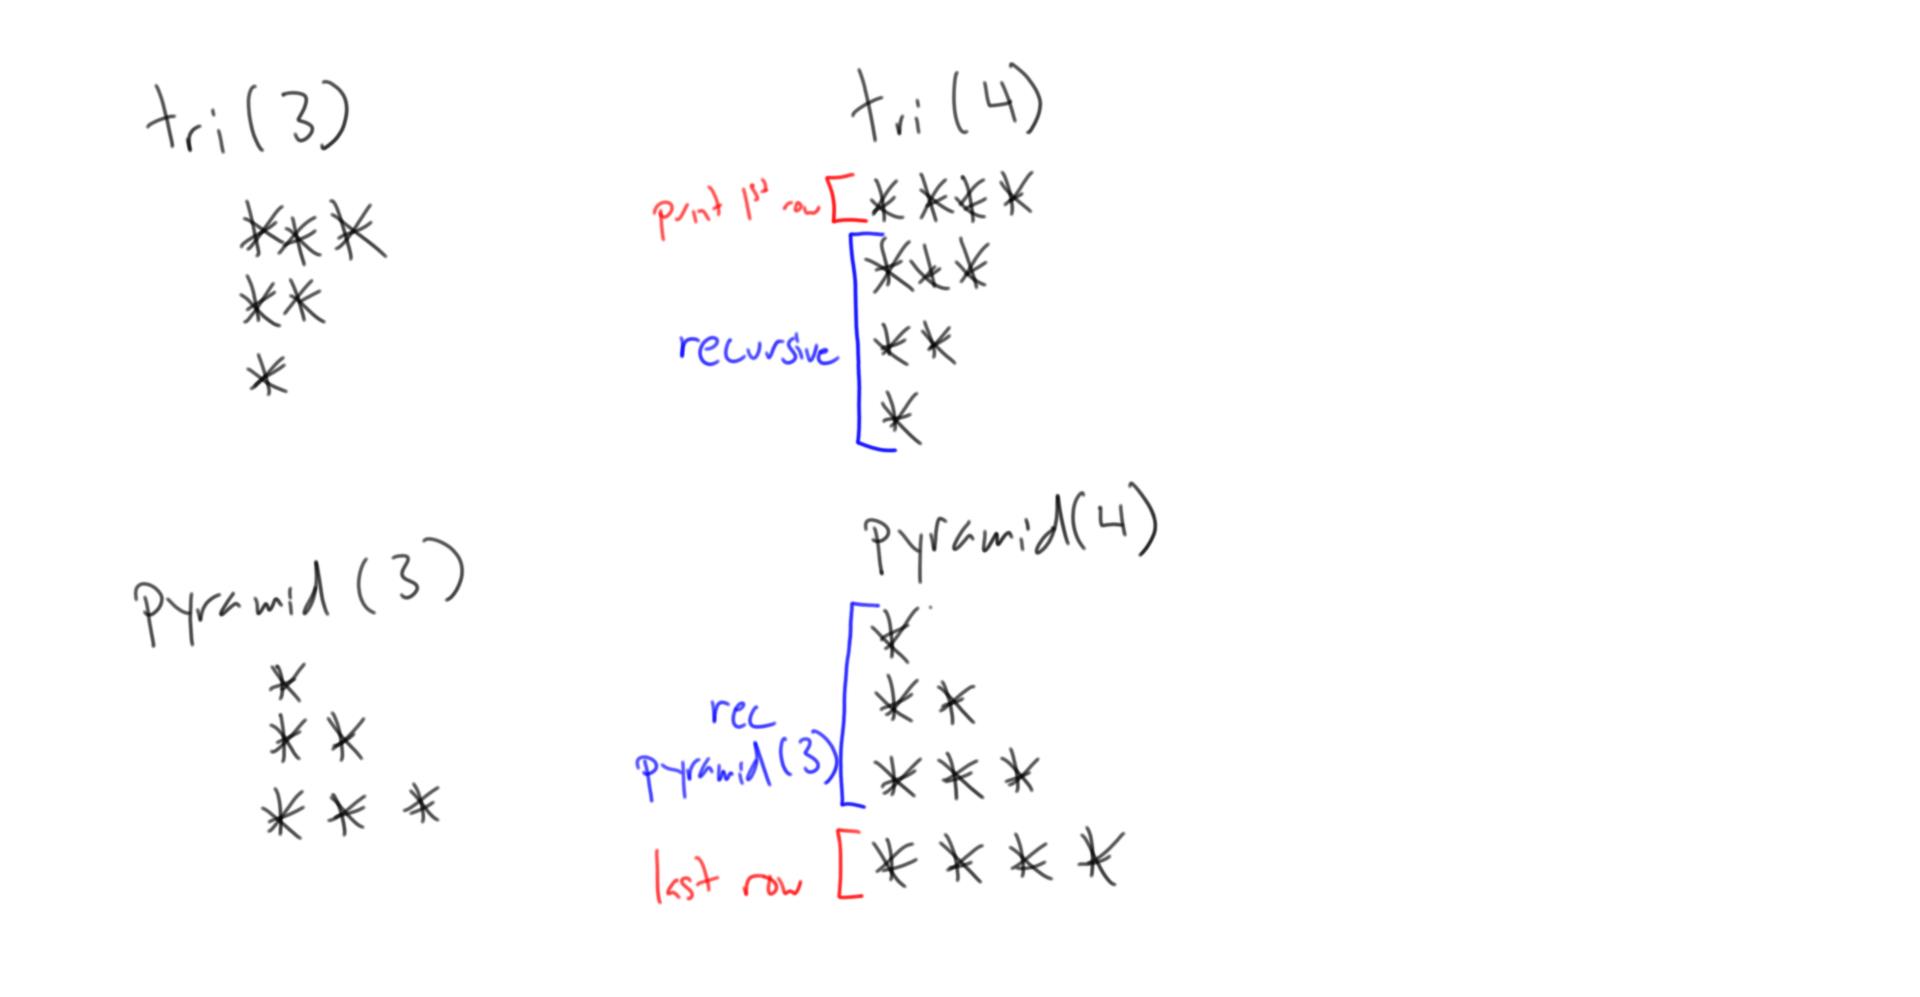 tri(3)
***
**
*
tri(4)
print 1st row [ ****
***
recursive [ **
*
pyramid(3)
*
* *
* * *
pyramid(4)
*
rec * *
pyramid(3) [ * * *
last row [ * * * *